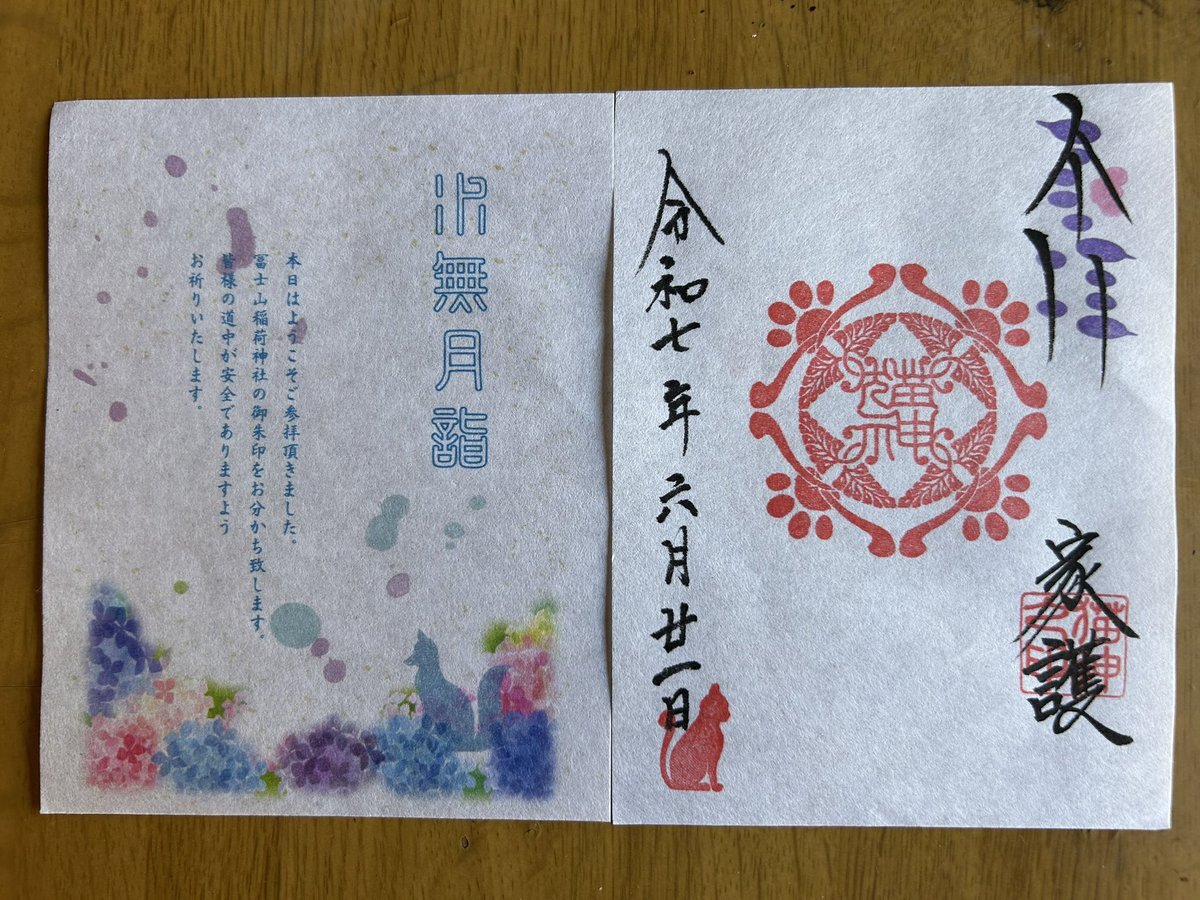 奉拝
家護
猫神
令和七年六月廿一日
水無月詣
本日はようこそご参拝頂きました。
冨士山稲荷神社の御朱印をお分かち致します。
皆様の道中が安全でありますよう
お祈りいたします。